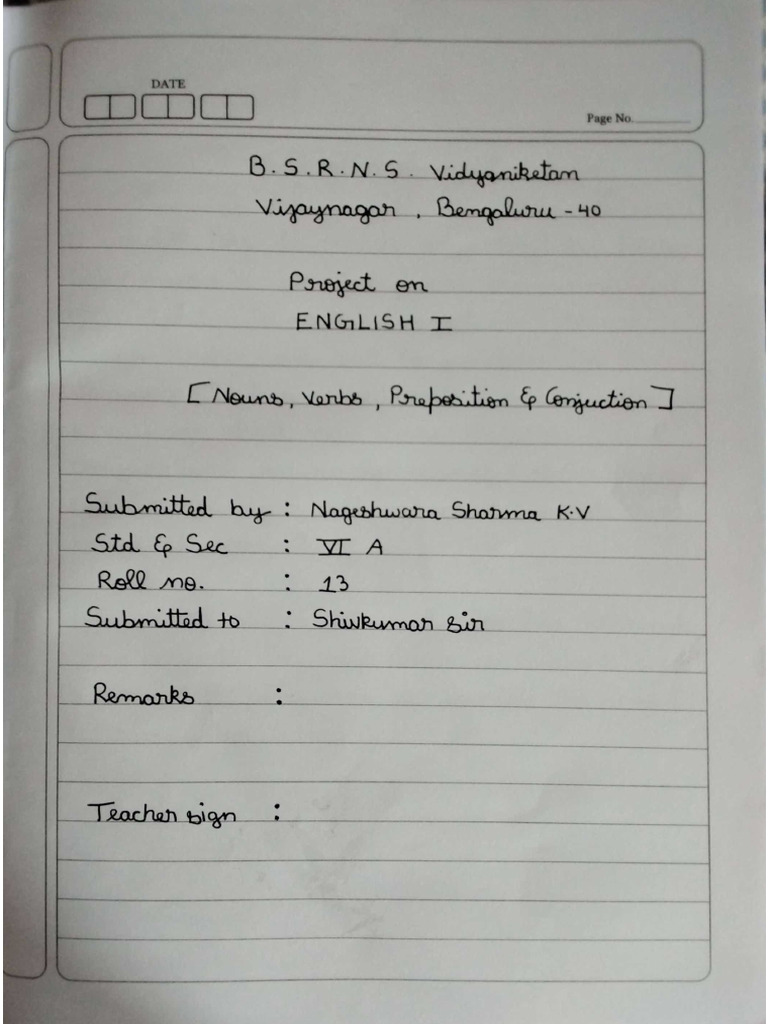 DATE
Page No.
B.S.R.N.S. Vidyaniketan
Vijaynagar, Bengaluru - 40
Project on
ENGLISH I
[Nouns, Verbs, Preposition & Conjuction]
Submitted by : Nageshwara Sharma K.V
Std & Sec : VI A
Roll no. : 13
Submitted to : Shivkumar Sir
Remarks :
Teacher sign :